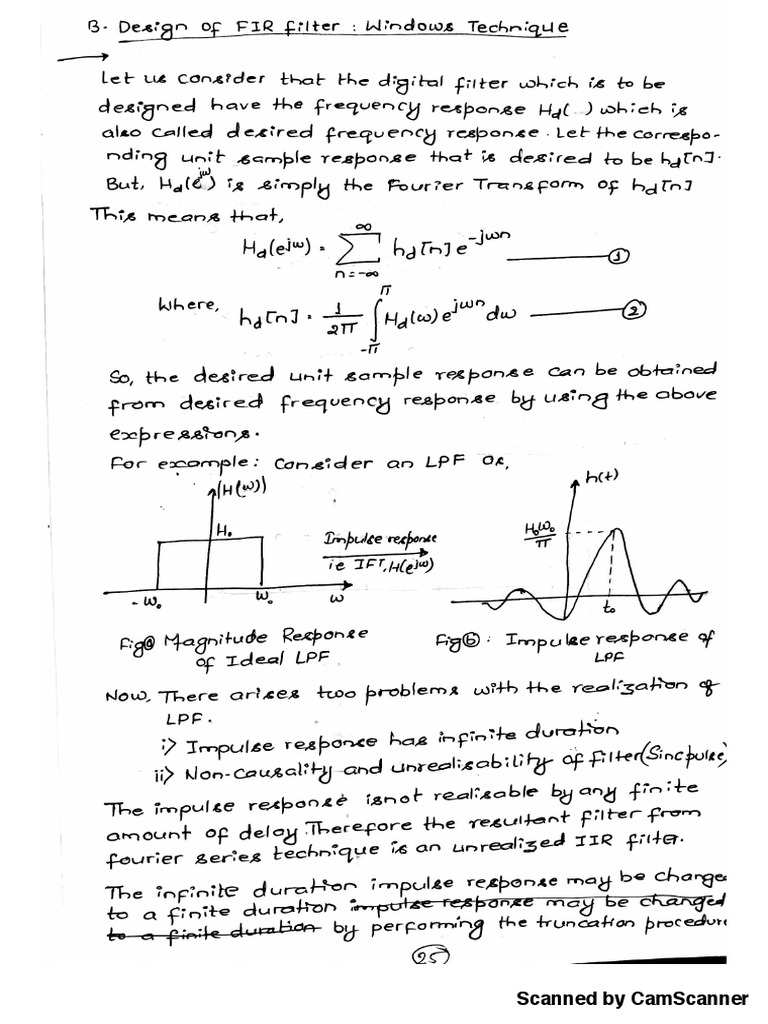 B. Design of FIR filter : Windows Technique
Let us consider that the digital filter which is to be
designed have the frequency response Hd( ) which is
also called desired frequency response. Let the correspo-
nding unit sample response that is desired to be hd[n].
But, Hd(e^jw) is simply the Fourier Transform of hd[n]
This means that,
Hd(e^jw) = ∑_{n=-∞}^{∞} hd[n] e^-jwn — ①
Where, hd[n] = 1/2π ∫_{-π}^{π} Hd(ω) e^jwn dω — ②
So, the desired unit sample response can be obtained
from desired frequency response by using the above
expressions.
For example: Consider an LPF as,
|H(ω)|
H₀
-ω₀
ω₀
ω
Impulse response
ie IFT, H(e^jω)
h(t)
H₀ω₀/π
t₀
Fig ⓐ Magnitude Response
of Ideal LPF
Fig ⓑ: Impulse response of
LPF
Now, There arises two problems with the realization of
LPF.
i) Impulse response has infinite duration
ii) Non-causality and unrealisability of filter (Sinc pulse)
The impulse response is not realisable by any finite
amount of delay. Therefore the resultant filter from
fourier series technique is an unrealized IIR filter.
The infinite duration impulse response may be change
to a finite duration impulse response may be changed
to a finite duration by performing the truncation procedure
25
Scanned by CamScanner